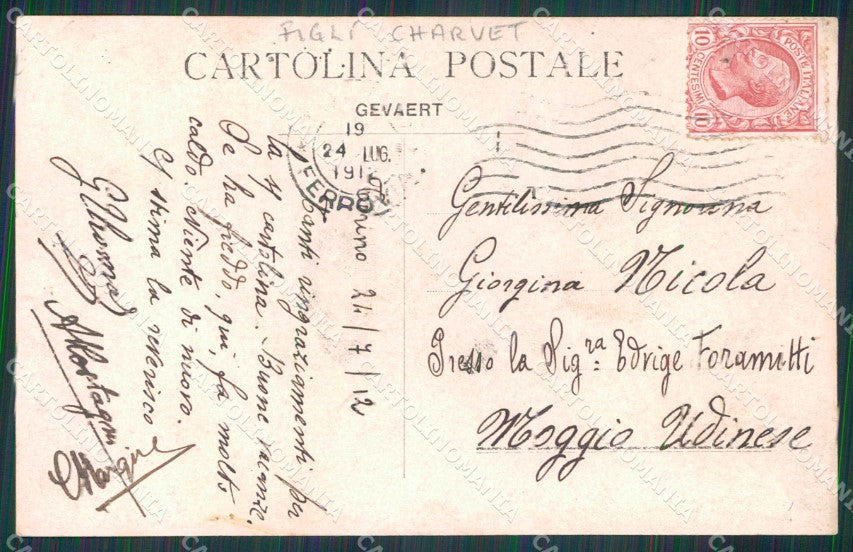 FIGLI CHARVET
CARTOLINA POSTALE
GEVAERT
19
24 LUG.
191
FERROV
10 CENTESIMI 10
POSTE ITALIANE
Torino 24/7/12
Tanti ringraziamenti per
la Sª cartolina. Buone vacanze.
Se ha freddo, qui, fa molto
caldo. Niente di nuovo.
Con stima la riverisco
Gentilissima Signorina
Giorgina Nicola
Presso la Sig.ra Edvige Foramitti
Moggio Udinese
CARTOLINOMANIA